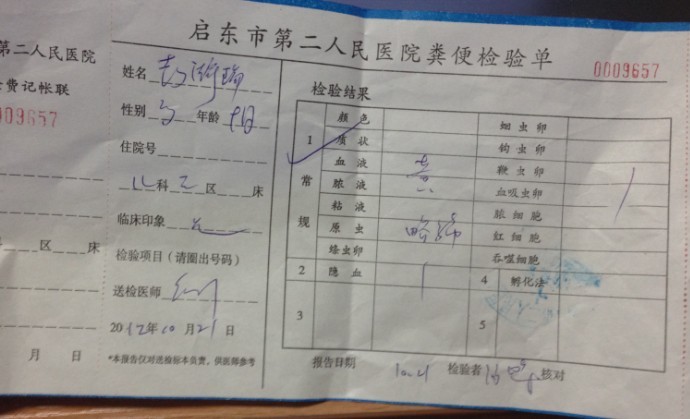 第二人民医院
费记帐联
0009657
区 床
月 日
启东市第二人民医院粪便检验单
0009657
姓名
性别 年龄
住院号
儿科 区 床
临床印象
检验项目(请圈出号码)
送检医师
2012年10月21日
*本报告仅对送检标本负责,供医师参考
检验结果
1 常规
颜色 黄 蛔虫卵
质状 钩虫卵
血液 鞭虫卵
脓液 血吸虫卵
粘液 脓细胞
原虫 红细胞
绦虫卵 吞噬细胞
2 隐血 4 孵化法
3 5
报告日期 10.21 检验者 核对